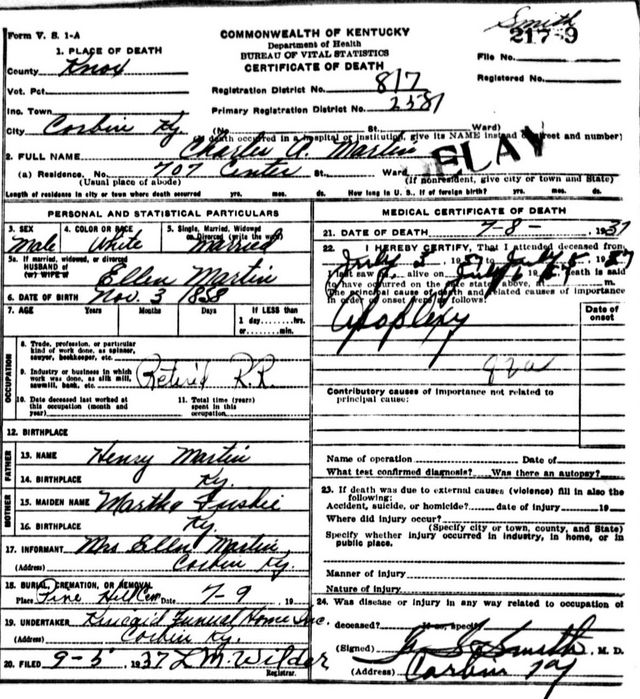 Smith
Form V. S. 1-A
COMMONWEALTH OF KENTUCKY
Department of Health
BUREAU OF VITAL STATISTICS
CERTIFICATE OF DEATH
File No.
Registered No.
1. PLACE OF DEATH
County Knox
Vot. Pct.
Inc. Town
City Corbin Ky.
Registration District No. 817
Primary Registration District No.
(No. St. Ward)
(If death occurred in a hospital or institution, give its NAME instead of street and number)
2. FULL NAME Charles A. Martin
(a) Residence. No. 707 Center St., Ward
(Usual place of abode) (If nonresident, give city or town and State)
Length of residence in city or town where death occurred yrs. mos. ds. How long in U. S., if of foreign birth? yrs. mos. ds.
DELAY
PERSONAL AND STATISTICAL PARTICULARS
3. SEX Male
4. COLOR OR RACE White
5. Single, Married, Widowed or Divorced (write the word) Married
5a. If married, widowed, or divorced
HUSBAND of
(or) WIFE of Ellen Martin
6. DATE OF BIRTH Nov. 3 1858
7. AGE Years Months Days If LESS than
1 day......hrs.
or......min.
OCCUPATION
8. Trade, profession, or particular
kind of work done, as spinner,
sawyer, bookkeeper, etc.
9. Industry or business in which
work was done, as silk mill,
sawmill, bank, etc. Retired R.R.
10. Date deceased last worked at
this occupation (month and
year)
11. Total time (years)
spent in this
occupation.
12. BIRTHPLACE
FATHER
13. NAME Henry Martin
14. BIRTHPLACE Ky.
MOTHER
15. MAIDEN NAME Martha
16. BIRTHPLACE Ky.
17. INFORMANT Mrs Ellen Martin,
(Address) Corbin Ky.
18. BURIAL, CREMATION, OR REMOVAL
Place Pine Hill Cem Date 7-9, 19
19. UNDERTAKER Kincaid Funeral Home Inc.
(Address) Corbin Ky.
20. FILED 9-5 1937 L M. Wilder
Registrar.
MEDICAL CERTIFICATE OF DEATH
21. DATE OF DEATH 7-8-, 1937
22. I HEREBY CERTIFY, That I attended deceased from
July 3, 1937 July 8, 1937
I last saw h alive on July 1937 death is said
to have occurred on the date stated above, at m.
The principal cause of death and related causes of importance
in order of onset were as follows:
Date of
onset
Apoplexy
82a
Contributory causes of importance not related to
principal cause:
Name of operation Date of
What test confirmed diagnosis? Was there an autopsy?
23. If death was due to external causes (violence) fill in also the
following:
Accident, suicide, or homicide? date of injury 19
Where did injury occur?
(Specify city or town, county, and State)
Specify whether injury occurred in industry, in home, or in
public place.
Manner of injury
Nature of injury
24. Was disease or injury in any way related to occupation of
deceased? If so, specify
(Signed) Smith, M. D.
(Address) Corbin Ky